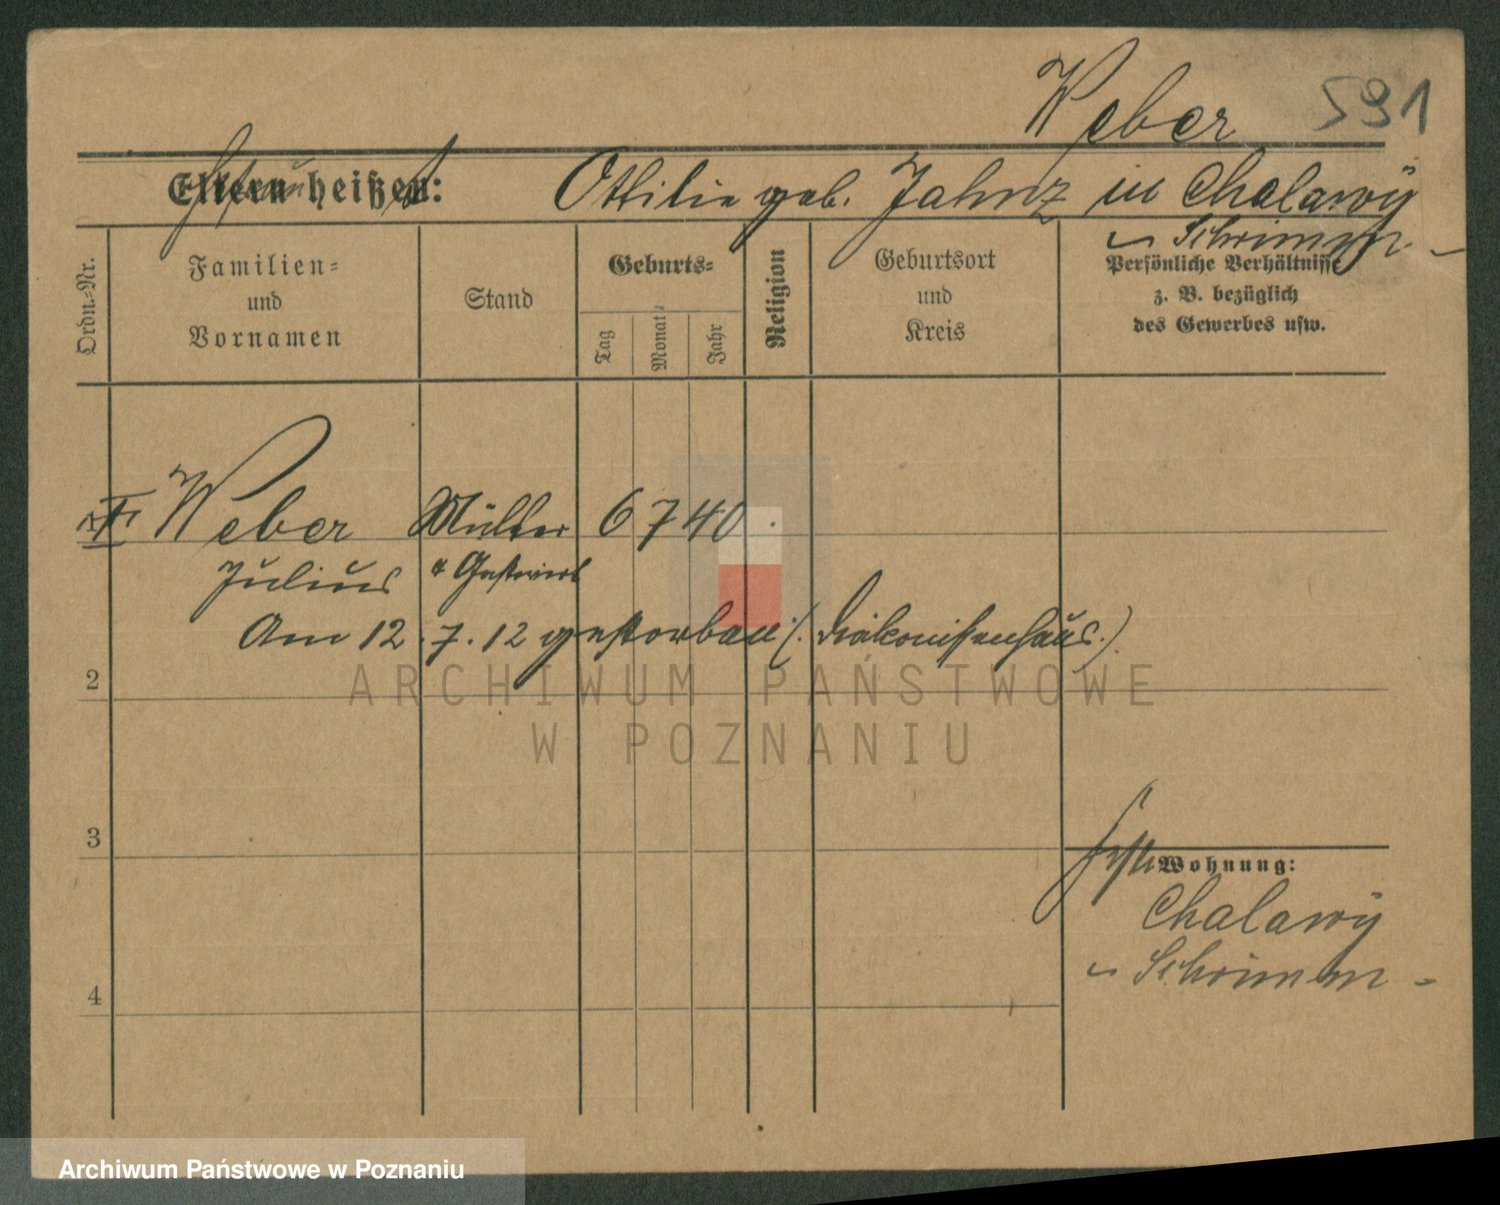 Weber 591
Eltern heißen: Ottilie geb. Jahnz in Chalawy
Schrimm
Ordn-Nr.
Familien-
und
Vornamen
Stand
Geburts-
Tag
Monat
Jahr
Religion
Geburtsort
und
Kreis
Persönliche Verhältnisse
z. B. bezüglich
des Gewerbes usw.
Weber Müller 6 7 40.
Julius Gastwirt
Am 12.7.12 gestorben (Diakonissenhaus.)
2
ARCHIWUM PAŃSTWOWE
W POZNANIU
3
Wohnung:
Chalawy
Schrimm
4
Archiwum Państwowe w Poznaniu